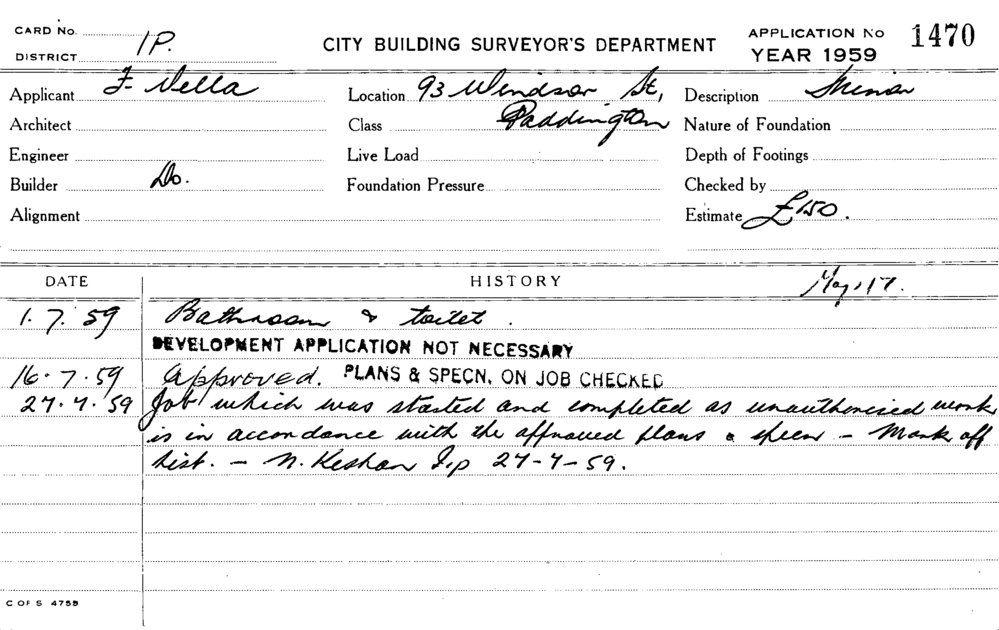 CARD No.
1P.
DISTRICT
CITY BUILDING SURVEYOR'S DEPARTMENT
APPLICATION No 1470
YEAR 1959
Applicant F. Vella
Location 93 Windsor St,
Paddington
Description Minor
Architect
Class
Nature of Foundation
Engineer
Live Load
Depth of Footings
Builder Do.
Foundation Pressure
Checked by
Alignment
Estimate £150.
DATE HISTORY
1.7.59 Bathroom & toilet.
DEVELOPMENT APPLICATION NOT NECESSARY
16.7.59 Approved. PLANS & SPECN. ON JOB CHECKED
27.7.59 Job which was started and completed as unauthorised work,
is in accordance with the approved plans & specn - Mark off
list. - N. 27-7-59.
C OF S 4759